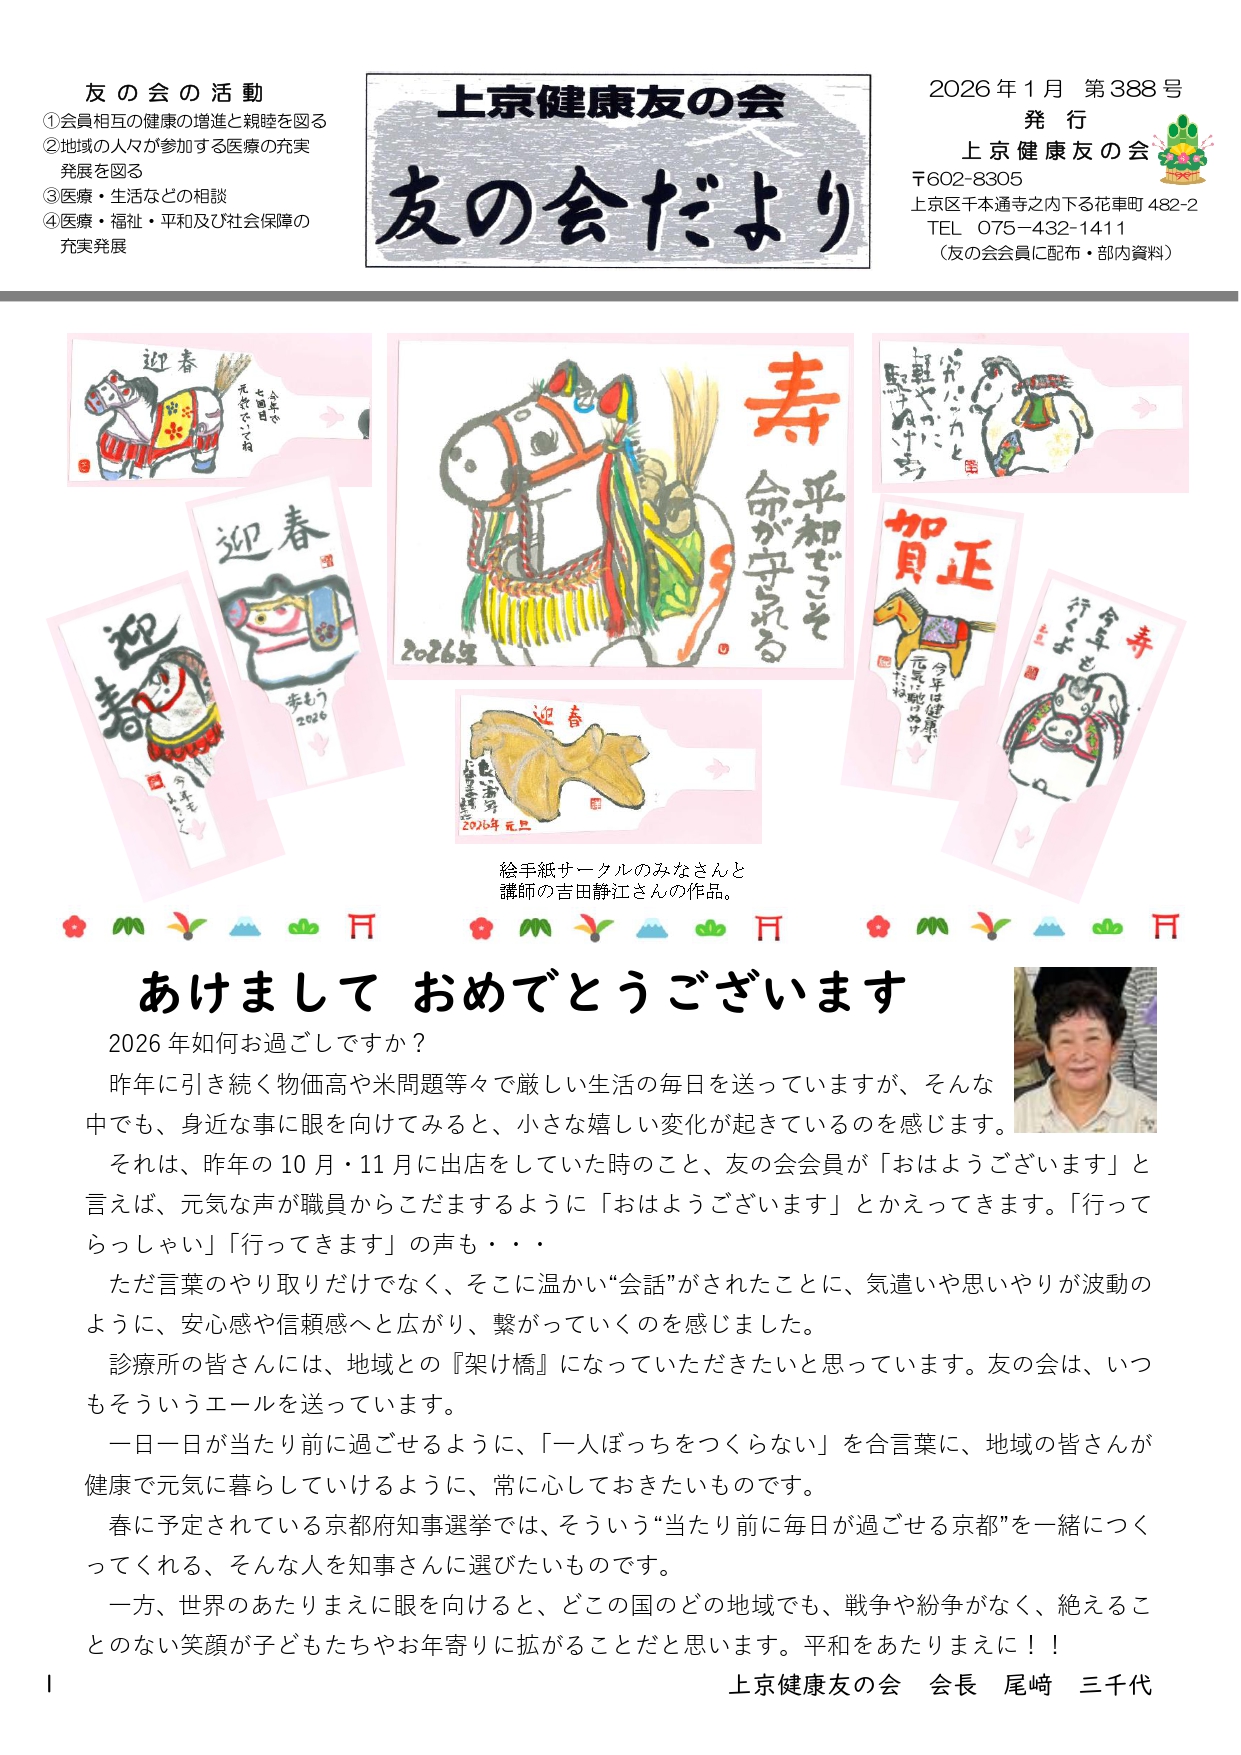 友の会の活動
①会員相互の健康の増進と親睦を図る
②地域の人々が参加する医療の充実
発展を図る
③医療・生活などの相談
④医療・福祉・平和及び社会保障の
充実発展
上京健康友の会
友の会だより
2026年1月 第388号
発 行
上京健康友の会
〒602-8305
上京区千本通寺之内下る花車町482-2
TEL 075－432-1411
（友の会会員に配布・部内資料）
迎春
今年で
七回目
元気でいてね
寿
平和でこそ
命が守られる
2026年
パカパッカと
軽やかに
迎春
歩もう
2026
迎
春
今年も
よろしく
賀正
今年は健康で
元気に駆けぬけ
たいね
寿
今年も
行くよ
迎春
2026年 元旦
絵手紙サークルのみなさんと
講師の吉田静江さんの作品。
あけまして おめでとうございます
2026年如何お過ごしですか？
昨年に引き続く物価高や米問題等々で厳しい生活の毎日を送っていますが、そんな
中でも、身近な事に眼を向けてみると、小さな嬉しい変化が起きているのを感じます。
それは、昨年の10月・11月に出店をしていた時のこと、友の会会員が「おはようございます」と
言えば、元気な声が職員からこだまするように「おはようございます」とかえってきます。「行って
らっしゃい」「行ってきます」の声も・・・
ただ言葉のやり取りだけでなく、そこに温かい“会話”がされたことに、気遣いや思いやりが波動の
ように、安心感や信頼感へと広がり、繋がっていくのを感じました。
診療所の皆さんには、地域との『架け橋』になっていただきたいと思っています。友の会は、いつ
もそういうエールを送っています。
一日一日が当たり前に過ごせるように、「一人ぼっちをつくらない」を合言葉に、地域の皆さんが
健康で元気に暮らしていけるように、常に心しておきたいものです。
春に予定されている京都府知事選挙では、そういう“当たり前に毎日が過ごせる京都”を一緒につく
ってくれる、そんな人を知事さんに選びたいものです。
一方、世界のあたりまえに眼を向けると、どこの国のどの地域でも、戦争や紛争がなく、絶えるこ
とのない笑顔が子どもたちやお年寄りに拡がることだと思います。平和をあたりまえに！！
上京健康友の会 会長 尾﨑 三千代
1